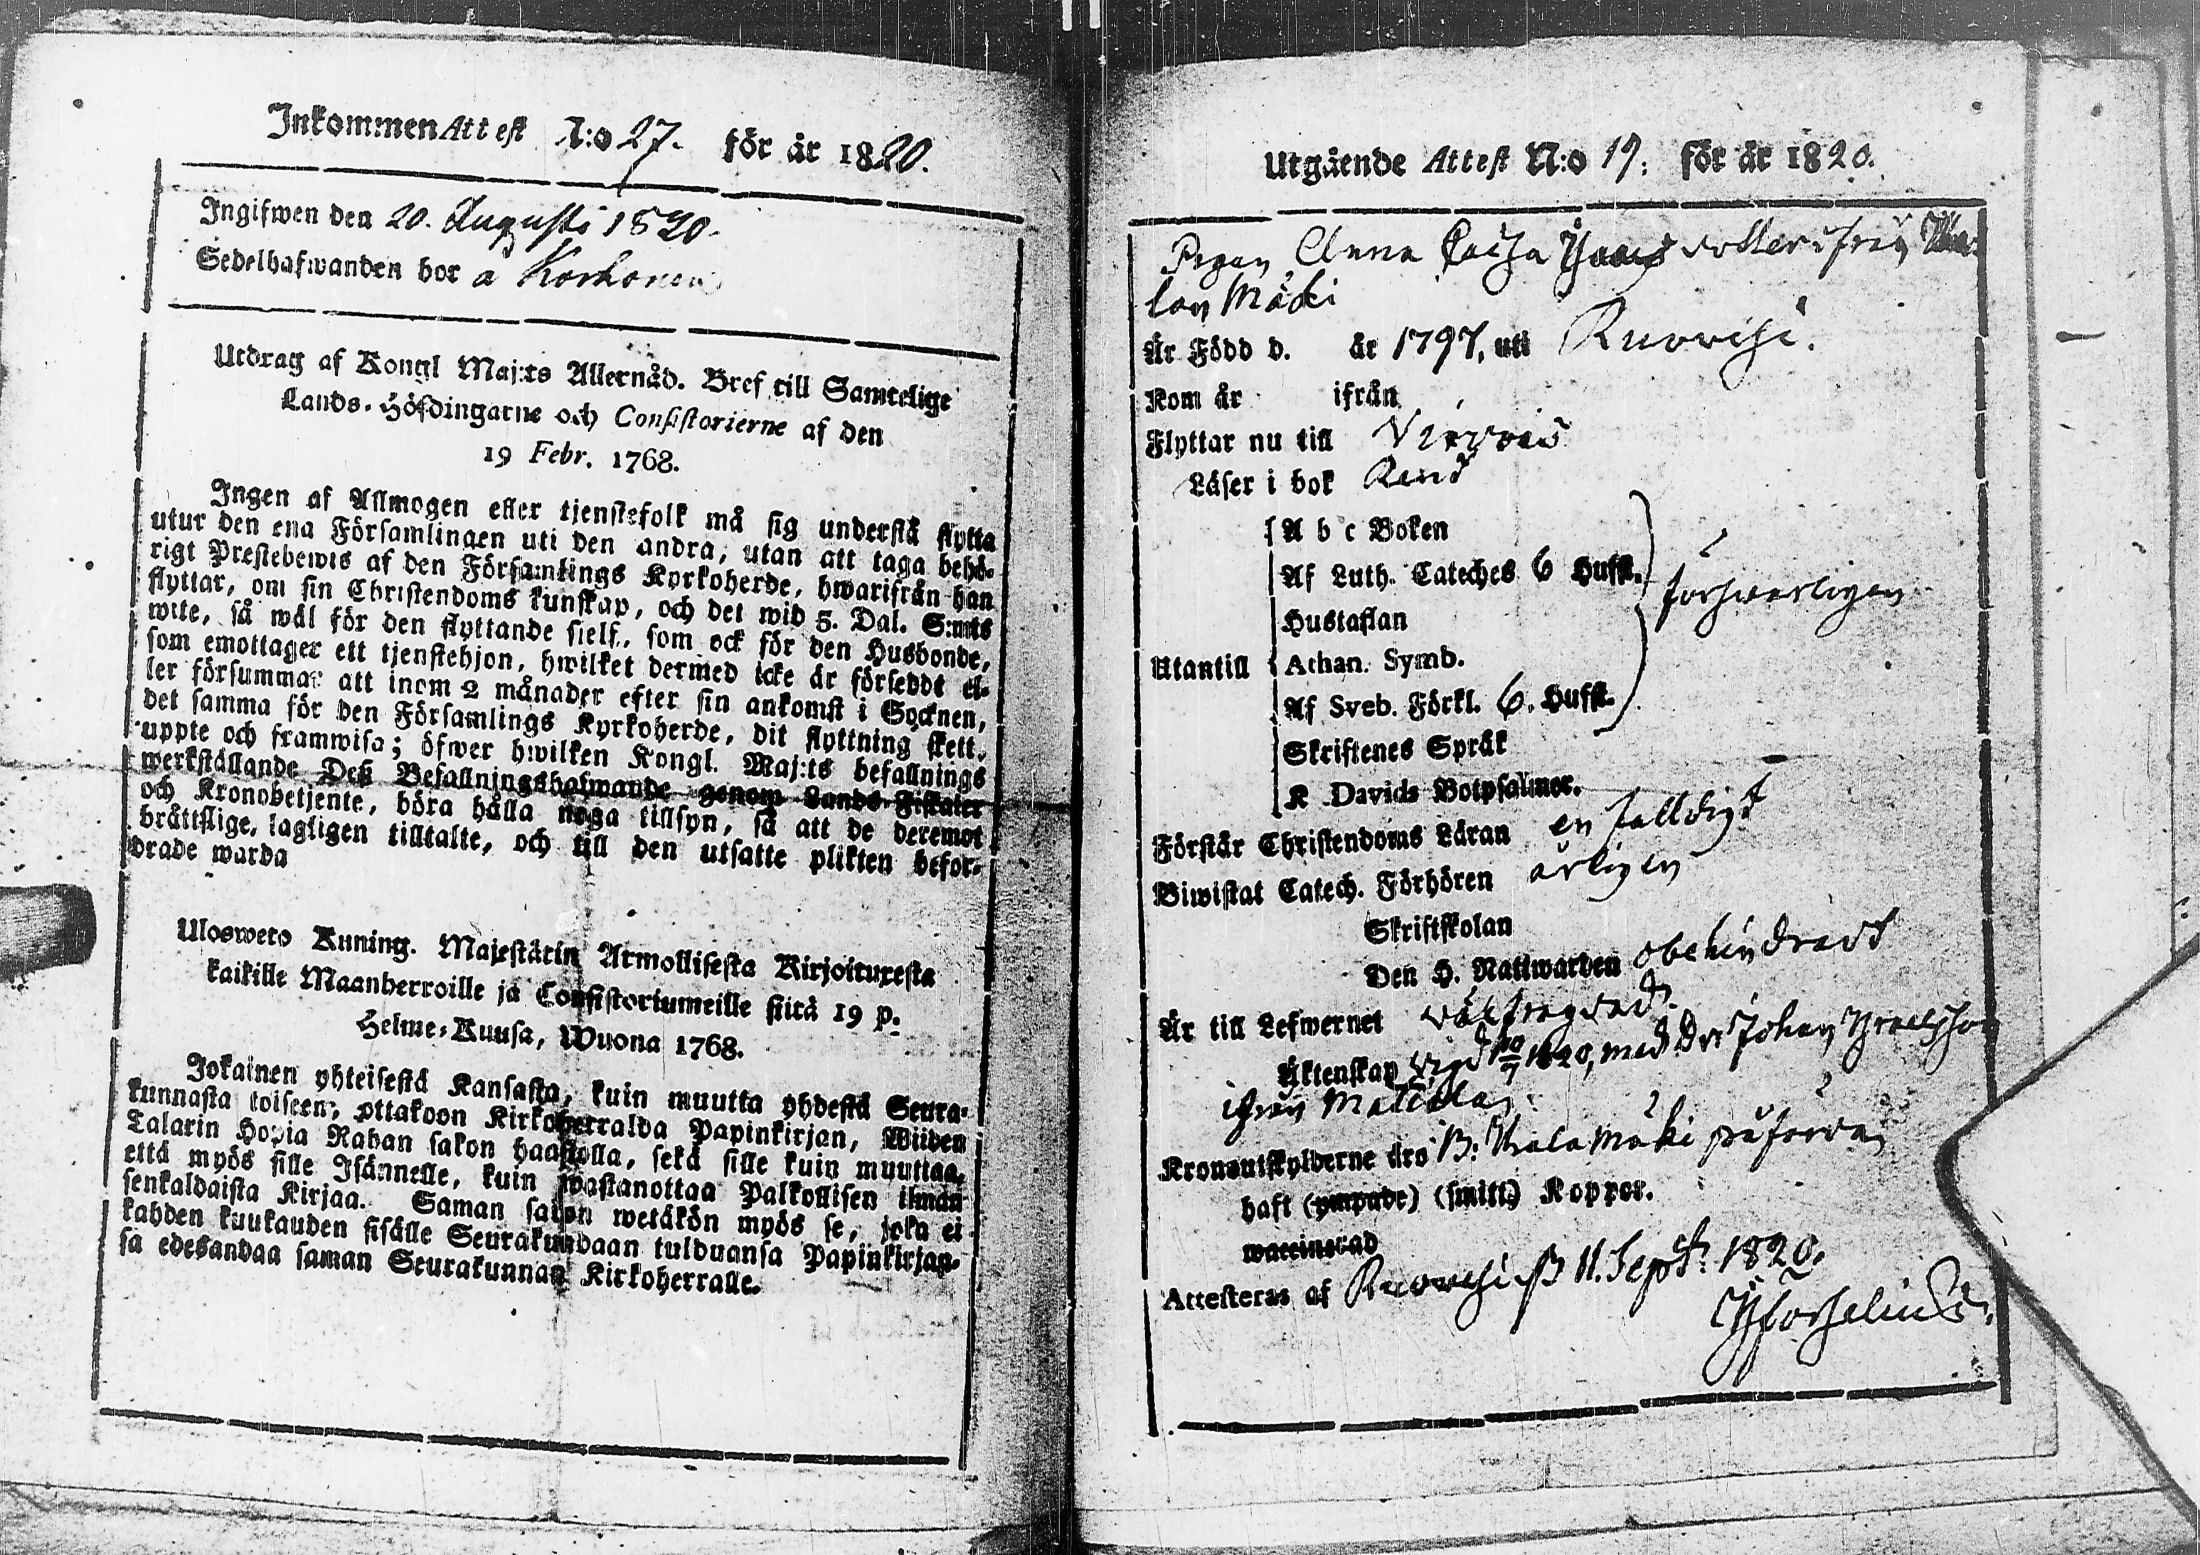 Inkommen Attest N:o 27. för år 1820.
Ingifwen den 20. Augusti 1820.
Sedelhafwanden bor å Korhonen
Utdrag af Kongl Maj:ts Allernåd. Bref till Samtelige
Lands-Höfdingarne och Consistorierne af den
19 Febr. 1768.
Ingen af Allmogen eller tjenstefolk må sig understå flytta
utur den ena Församlingen uti den andra, utan att taga behö-
rigt Prestebewis af den Församlings Kyrkoherde, hwarifrån han
flyttar, om sin Christendoms kunskap, och det wid 5. Dal. S:mts
wite, så wäl för den flyttande sielf, som ock för den Husbonde,
som emottager ett tjenstehjon, hwilket dermed icke är förseddt el-
ler försummar att inom 2 månader efter sin ankomst i Socknen,
det samma för den Församlings Kyrkoherde, dit flyttning skett,
uppte och framwisa; öfwer hwilken Kongl. Maj:ts befallnings
werkställande Deß Befallningshafwande genom Lands-Fiskaler
och Kronobetjente, böra hålla noga tillsyn, så att de deremot
bråttslige, lagligen tilltalte, och till den utsatte plikten befor-
drade warda
Ulosweto Kuning. Majestätin Armollisesta Kirjoituxesta
kaikille Maanherroille ja Consistoriumeille siitä 19 p.
Helme-Kuusa, Wuona 1768.
Jokainen yhteisestä Kansasta, kuin muutta yhdestä Seura-
kunnasta toiseen, ottakoon Kirkoherralda Papinkirjan, Wiiden
Talarin Hopia Rahan sakon haastolla, sekä sille kuin muuttaa,
että myös sille Isännelle, kuin wastanottaa Palkollisen ilman
senkaldaista Kirjaa. Saman sakon wetäkön myös se, joka ei
kahden kuukauden sisälle Seurakundaan tulduansa Papinkirjan-
sa edesandaa saman Seurakunnan Kirkoherralle.
Utgående Attest N:o 19. för år 1820.
Pigan Anna Caisa dotter ifrån
lan Mäki
Är Född d. år 1797, uti Ruovesi.
Kom år ifrån
Flyttar nu till Virdois
Läser i bok Rent
A b c Boken
Af Luth. Cateches 6 Hufst.
försvarligen
Hustaflan
Utantill
Athan. Symb.
Af Sveb. Förkl. 6. Hufst.
Skriftenes Språk
K Davids Botpsalmer.
Förstår Christendoms Läran enfalldigt
Biwistat Catech. Förhören årligen
Skriftskolan
Den H. Nattwarden obehindradt
Är till Lefwernet välfrägdad.
Äktenskap 1820, med Dr: Johan
ifrån
Kronoutskylderne äro B: Mäki påförda
haft (ympade) (smitt.) Koppor.
waccinerad
Attesteras af Ruovesi d. 11. Sept: 1820.